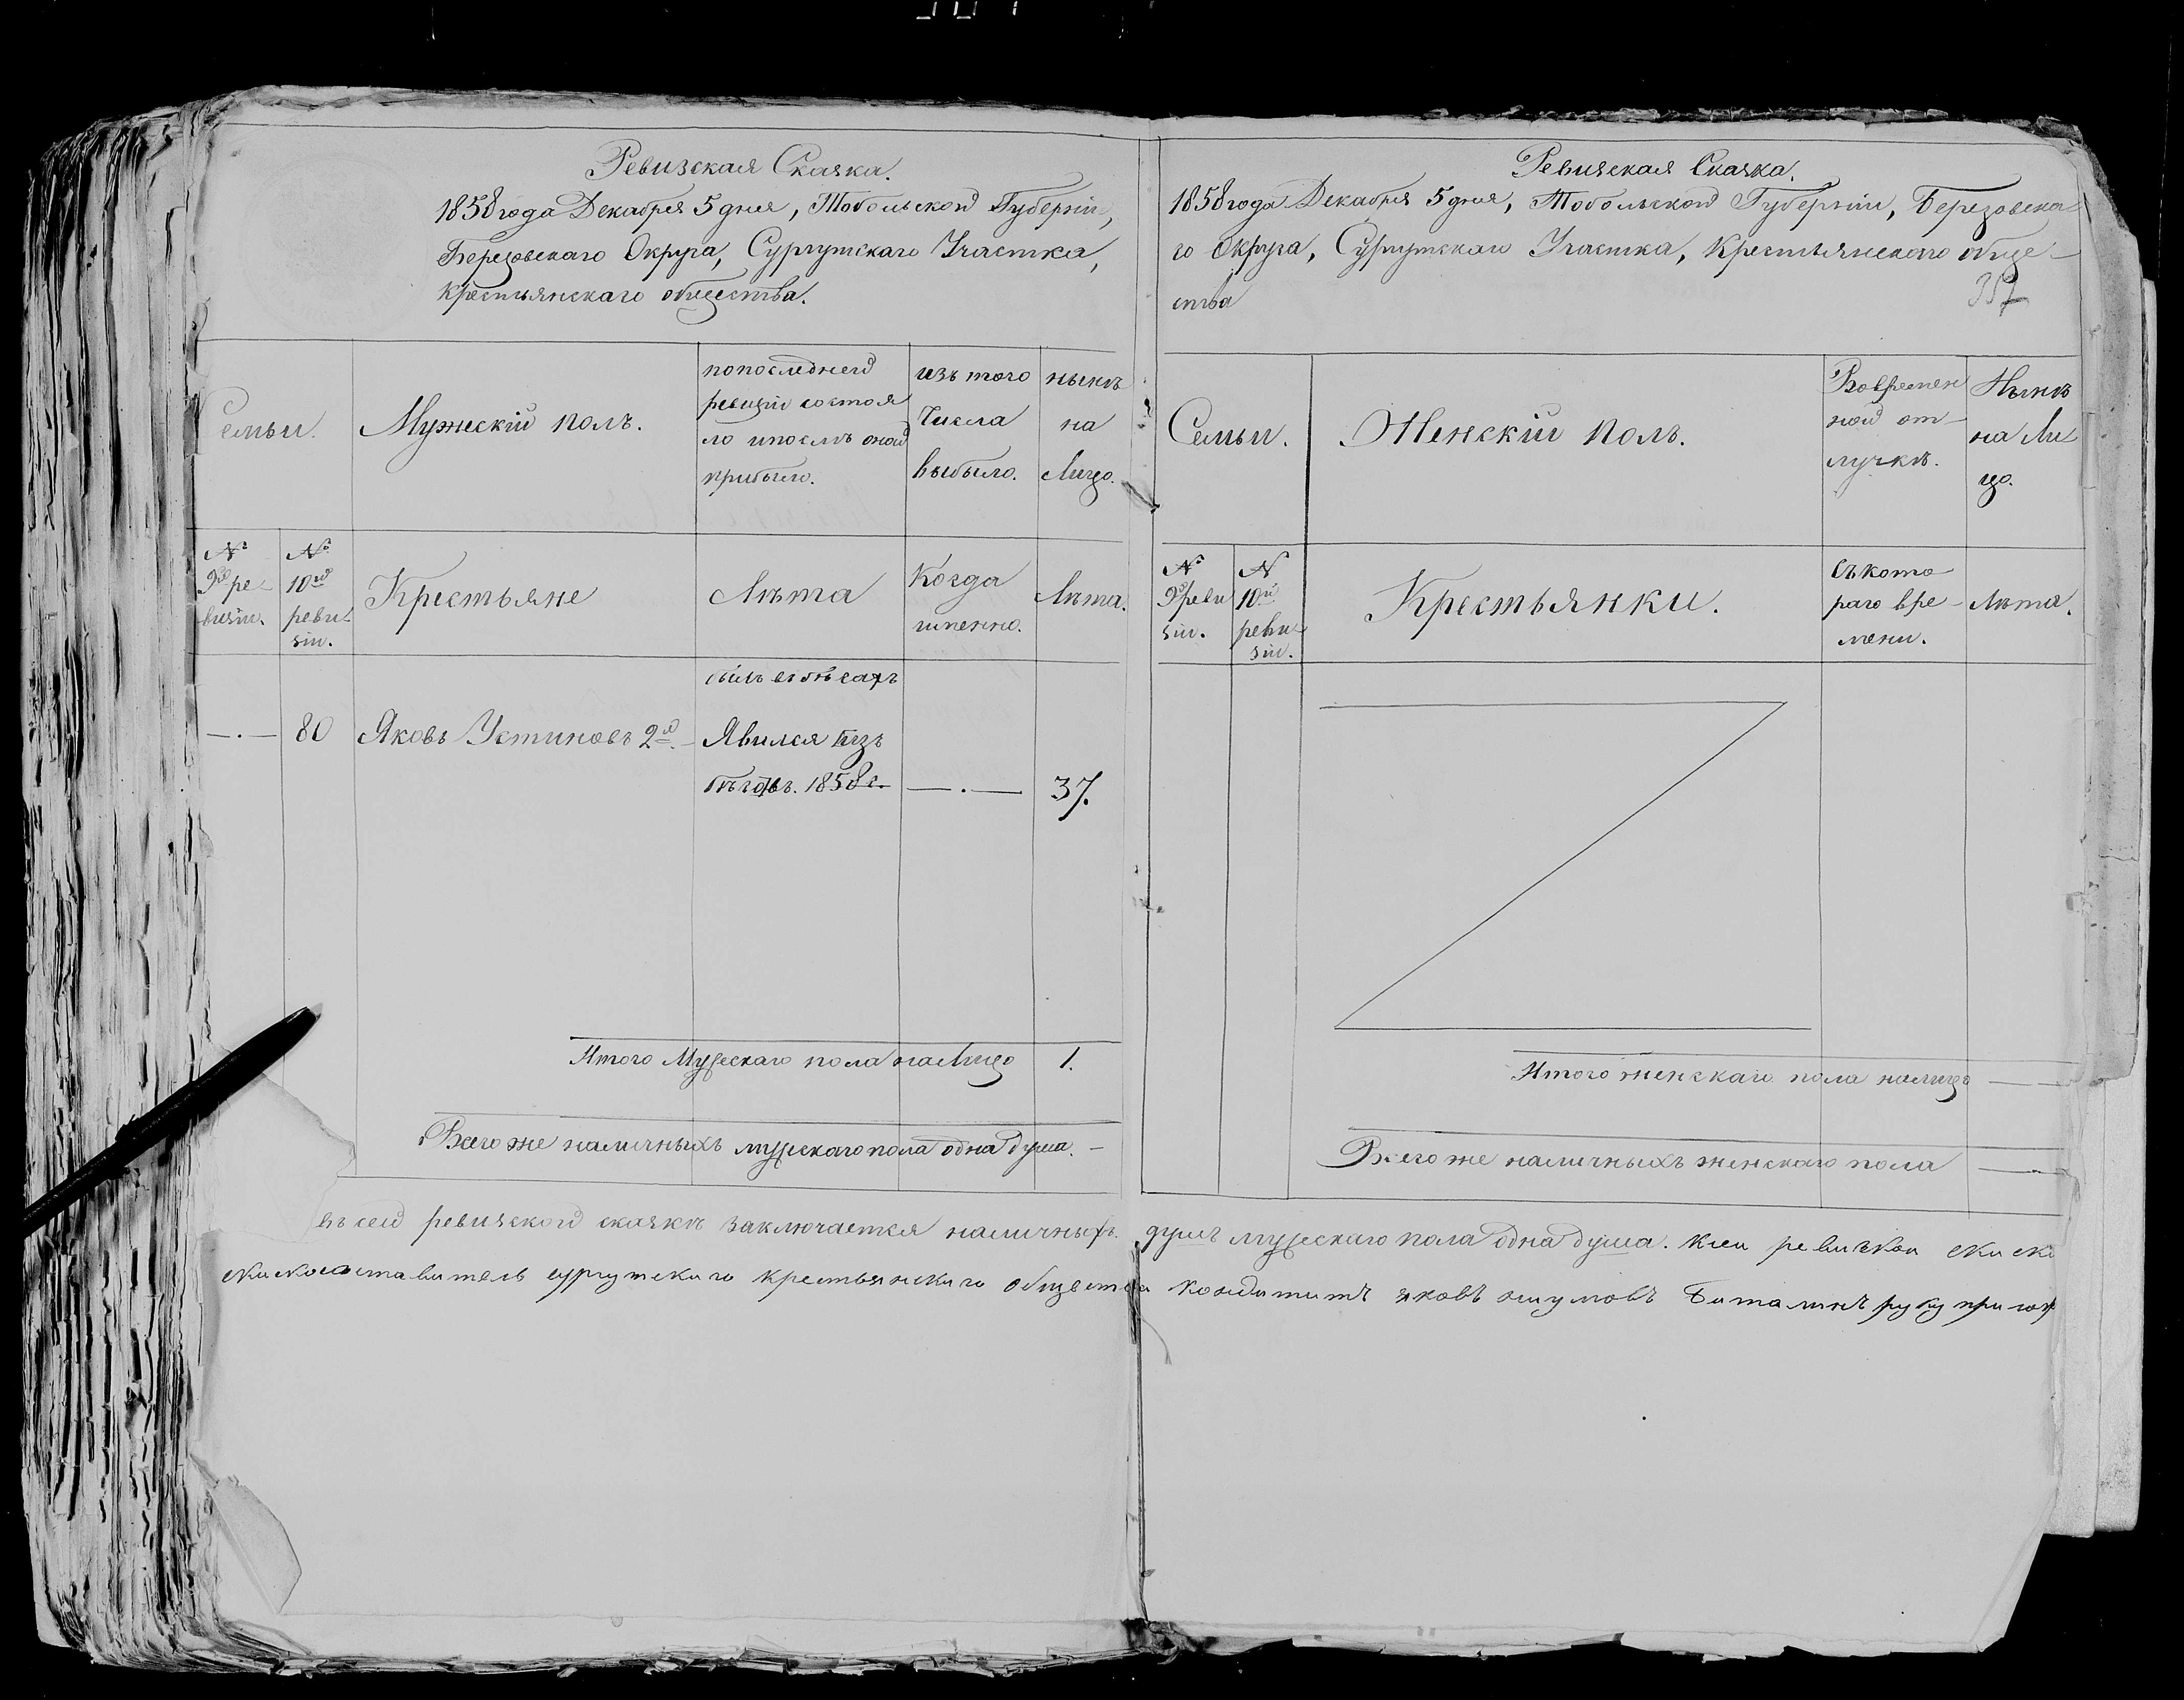 Ревизская Сказка.
1858 года Декабря 5 дня, Тобольской Губерніи,
Березовскаго Округа, Сургутскаго Участка,
крестьянскаго общества.
Семьи.
Мужескій полъ.
по последней
ревизіи состоя
ло и послѣ оной
прибыло.
изъ того
Числа
выбыло.
нынѣ
на
Лицо.
№
9й ре-
визіи.
№
10й
реви-
зіи.
Крестьяне
Лѣта
Когда
именно.
Лѣта.
былъ въ бѣгахъ
— . — 80 Яковъ Устиновъ 2й. – Явился изъ
бѣговъ. 1858 г. — . — 37.
Итого Мужескаго пола на Лицо 1.
Всего же наличныхъ мужескаго пола одна душа. –
Ревизская Сказка.
1858 года Декабря 5 дня, Тобольской Губерніи, Березовска-
го Округа, Сургутскаго Участка, Крестьянскаго обще-
ства
357
Семьи.
Женскій полъ.
Во времен
ной от-
лучкѣ.
Нынѣ
на Ли
цо.
№
9й реви
зіи.
№
10й
реви-
зіи.
Крестьянки.
съ кото
раго вре-
мени.
Лѣта.
Итого женскаго пола налицо —
Всего же наличныхъ женскаго пола —
въ сей ревизской сказкѣ заключается наличныхъ. душъ мужескаго пола одна душа. Ксеи ревиской скаске
скаскосоставитель сургутскаго крестьянскаго общества кондитатъ яковъ руку прилож